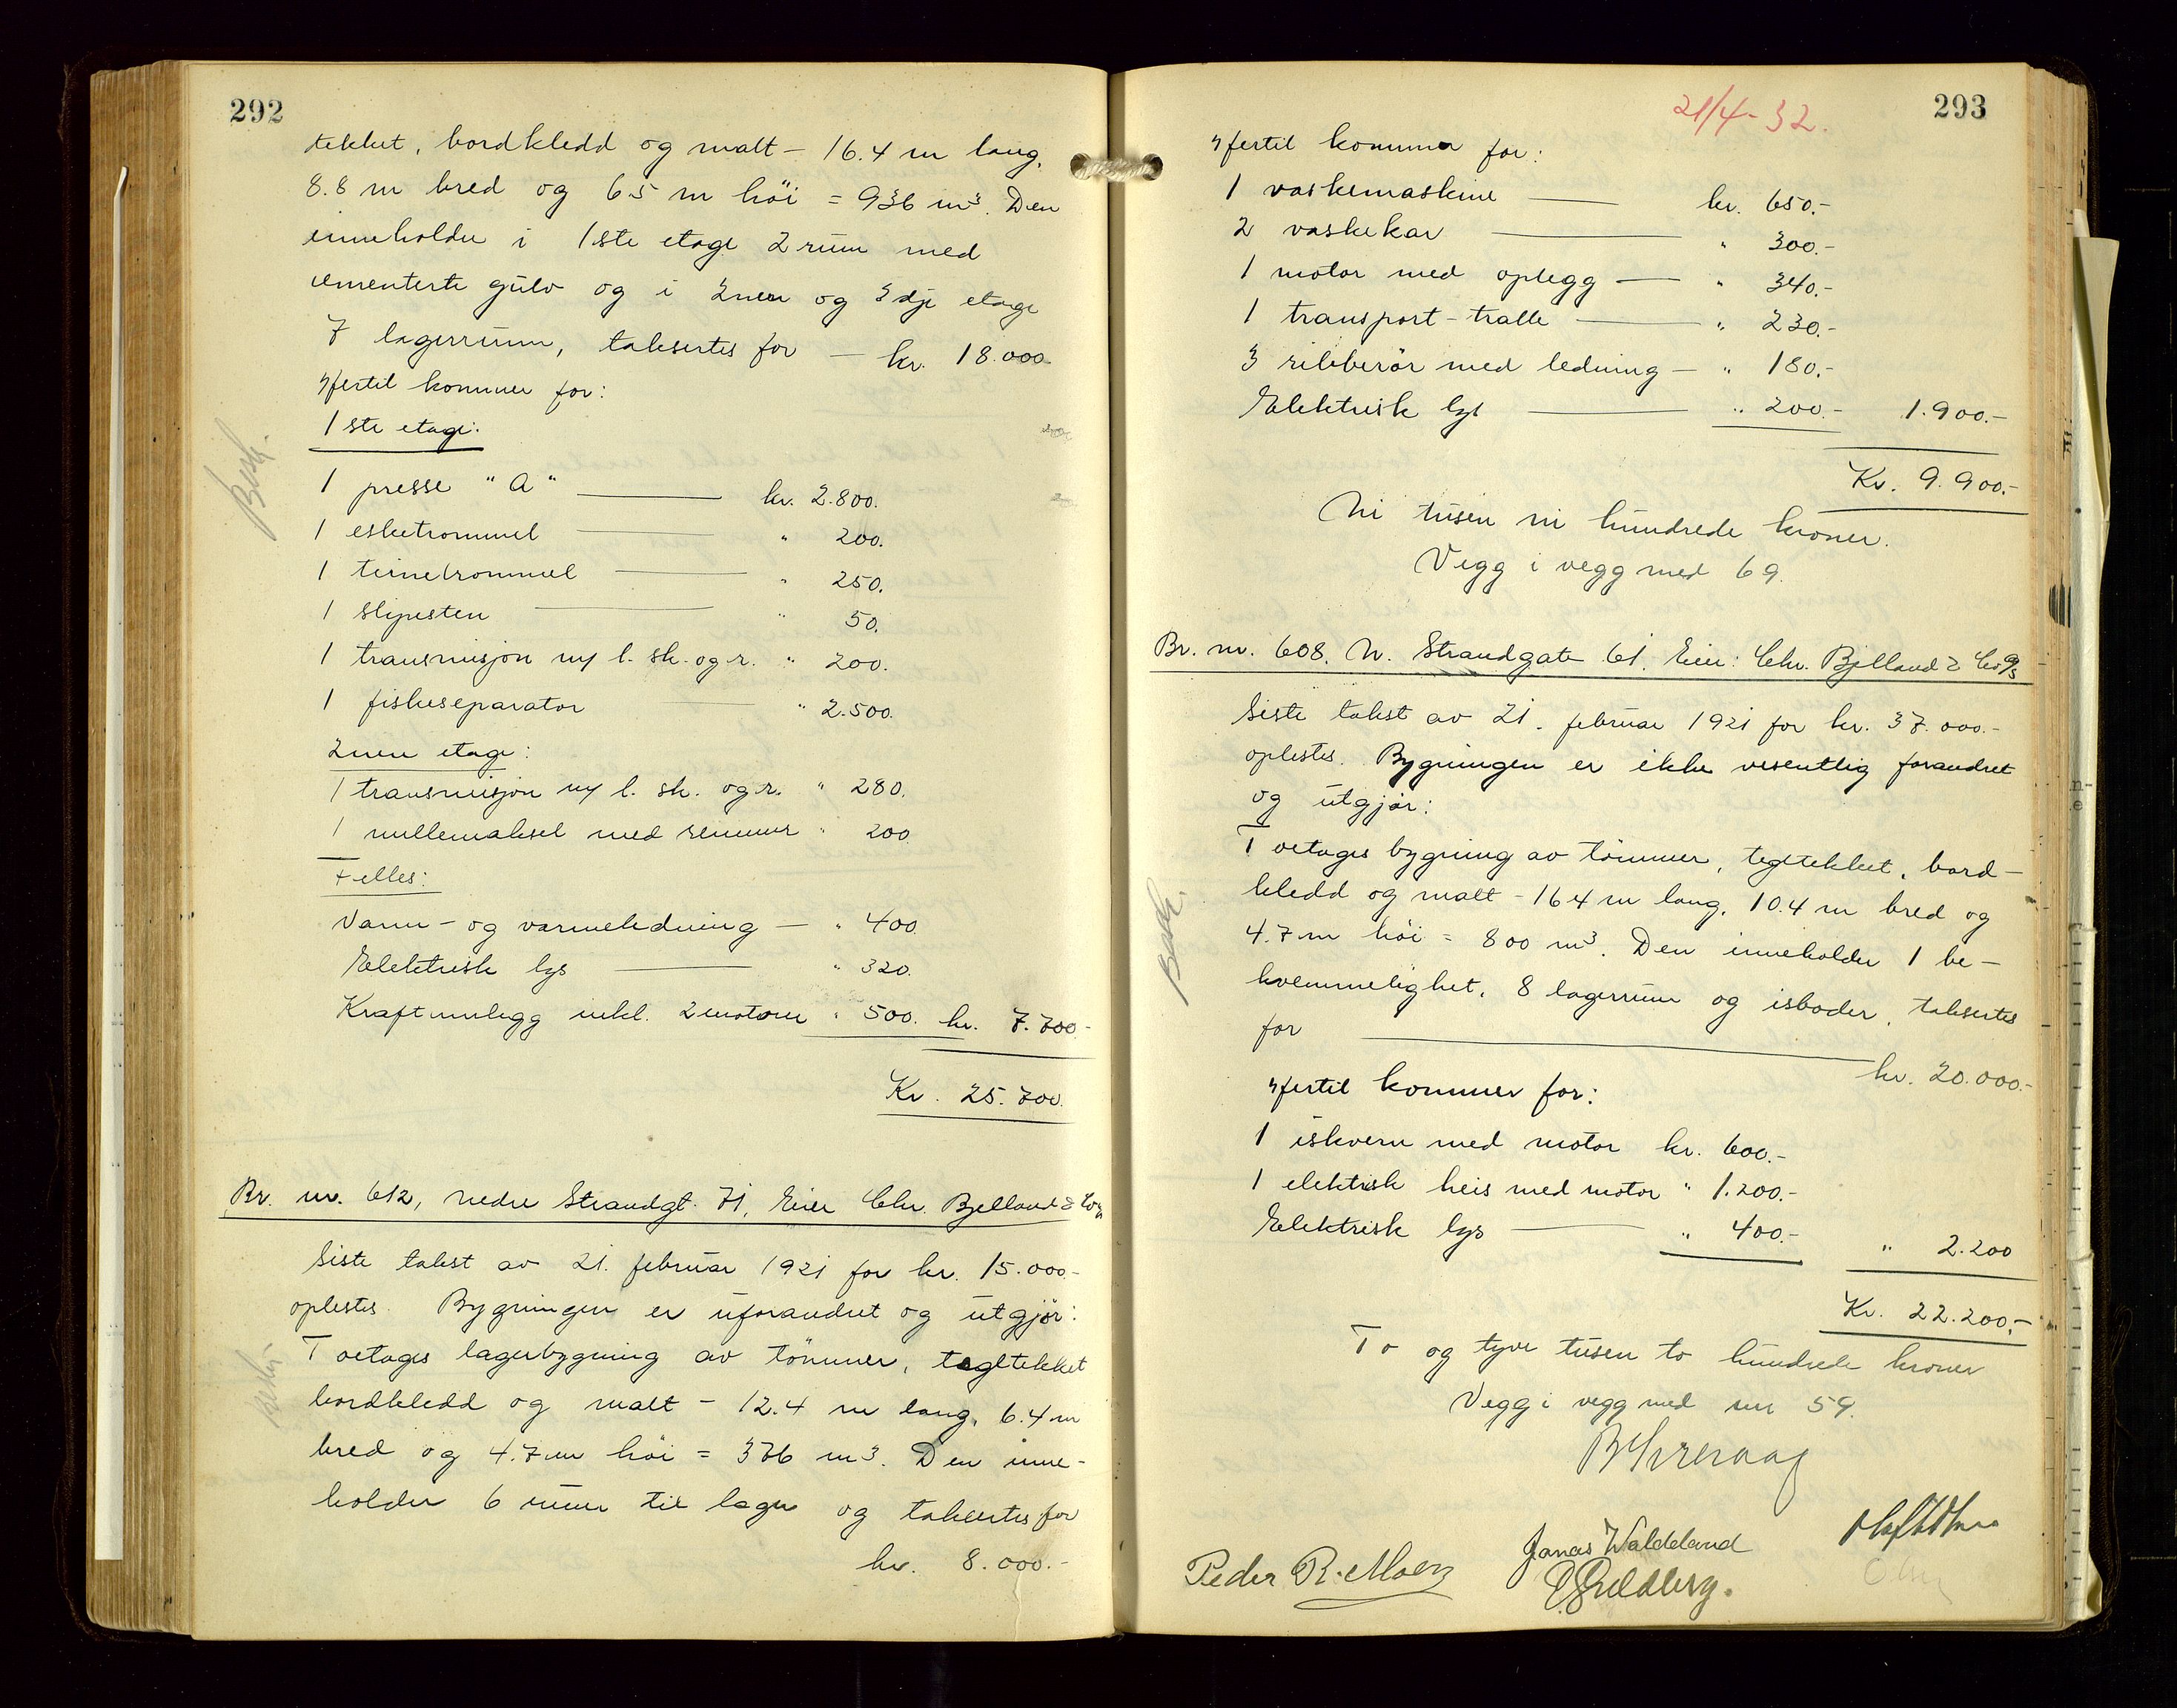 292
tekket, bordkledd og malt – 16.4 m lang,
8.8 m bred og 6.5 m höi = 936 m³. Den
inneholder i 1ste etage 2 rum med
cementerte gulv og i 2nen og 3dje etage
7 lagerrum, taksertes for – kr. 18.000
Hertil kommer for:
1ste etage:
Besk.
1 presse "A" — kr. 2.800.
1 esketrommel — " 200.
1 terne trommel — " 250.
1 slipesten — " 50.
1 transmisjon m/ l. sk. og r. " 200.
1 fiskeseparator — " 2.500.
2nen etage:
1 transmisjon m/ l. sk. og r. " 280.
1 mellemaksel med remmer " 200
Felles:
Vann- og varmeledning — " 400
Elektrisk lys — " 320.
Kraftanlegg inkl. 2 motorer " 500. kr. 7.700.-
Kr. 25.700.
Br. nr. 612, nedre Strandgt. 71, Eier Chr. Bjelland & Co A/S
Siste takst av 21. februar 1921 for kr. 15.000.-
oplestes. Bygningen er uforandret og utgjör:
Toetages lagerbygning av tömmer, tegltekket
bordkledd og malt – 12.4 m lang, 6.4 m
bred og 4.7 m höi = 376 m3. Den inne-
holder 6 rum til lager og taksertes for
kr. 8.000.-
21/4-32.
293
Hertil kommer for:
1 vaskemaskine — kr. 650.-
2 vaskekar — " 300.-
1 motor med oplegg — " 340.-
1 transport-tralle — " 230.-
3 ribberör med ledning — " 180.-
Elektrisk lys — " 200.- 1.900.-
Kr. 9.900.-
Ni tusen ni hundrede kroner.
Vegg i vegg med 69.
Br. nr. 608. N. Strandgate 61. Eier: Chr. Bjelland & Co A/S
Siste takst av 21. februar 1921 for kr. 37.000.-
oplestes. Bygningen er ikke vesentlig forandret
og utgjör:
Toetages bygning av tömmer, tegltekket, bord-
kledd og malt – 16.4 m lang, 10.4 m bred og
4.7 m höi = 800 m3. Den inneholder 1 be-
Besk.
kvemmelighet, 8 lagerrum og isboder, taksertes
for — kr. 20.000.-
Hertil kommer for:
1 iskvern med motor kr. 600.-
1 elektrisk heis med motor " 1.200.-
Elektrisk lys — " 400.- " 2.200
Kr. 22.200.-
To og tyve tusen to hundrede kroner
Vegg i vegg med nr 59.
Jonas Waldeland
Peder R. Moen